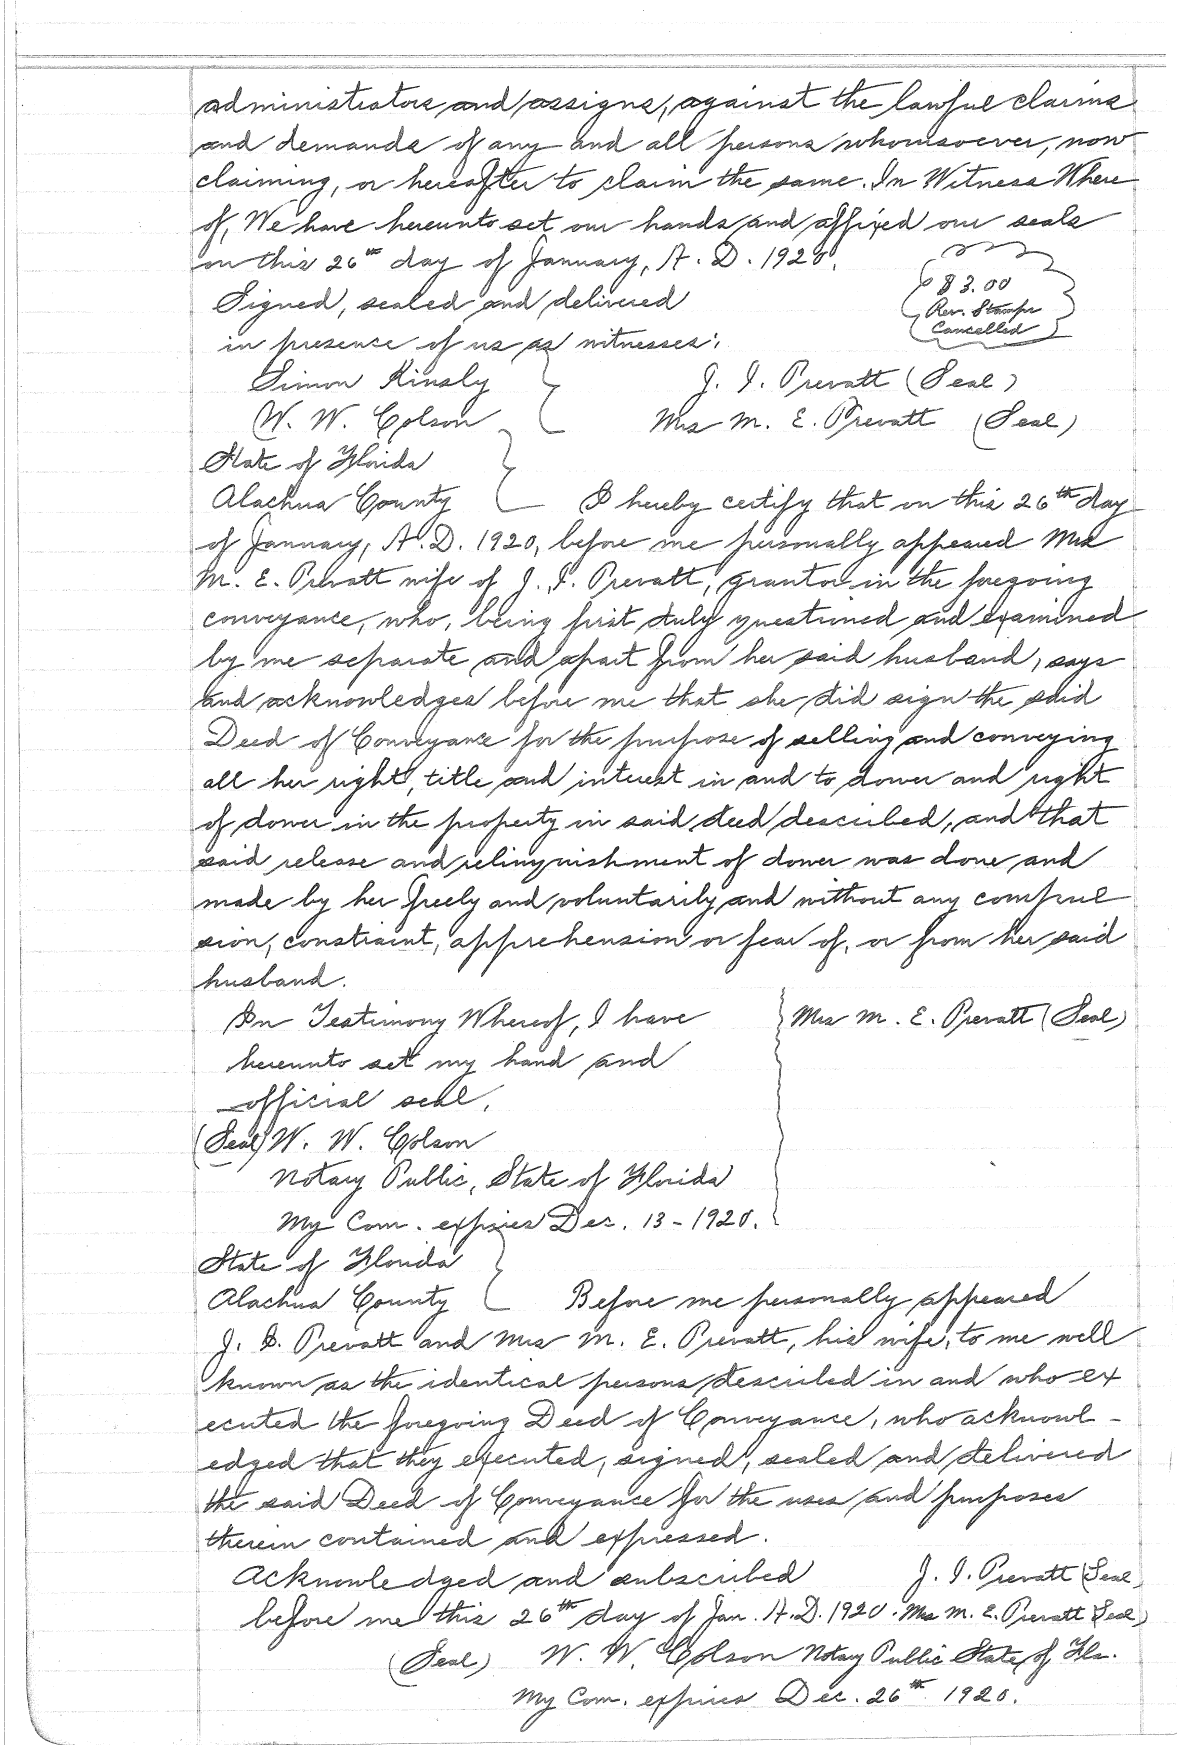 administrators and assigns, against the lawful claims
and demands of any and all persons whomsoever, now
claiming, or hereafter to claim the same. In Witness Where
of, We have hereunto set our hands and affixed our seals
on this 26th day of January, A. D. 1920.
$3.00
Rev. Stamps
Cancelled
Signed, sealed and delivered
in presence of us as witnesses:
Simon Kinsly J. I. Prevatt (Seal)
W. W. Colson Mrs M. E. Prevatt (Seal)
State of Florida
Alachua County I hereby certify that on this 26th day
of January, A. D. 1920, before me personally appeared Mrs
M. E. Prevatt wife of J. I. Prevatt, grantor in the foregoing
conveyance, who, being first duly questioned and examined
by me separate and apart from her said husband, says
and acknowledges before me that she did sign the said
Deed of Conveyance for the purpose of selling and conveying
all her right, title and interest in and to dower and right
of dower in the property in said deed described, and that
said release and relinquishment of dower was done and
made by her freely and voluntarily and without any compul
sion, constraint, apprehension or fear of, or from her said
husband.
In Testimony Whereof, I have Mrs M. E. Prevatt (Seal)
hereunto set my hand and
official seal.
(Seal) W. W. Colson
Notary Public, State of Florida
My Com. expires Dec. 13-1920.
State of Florida
Alachua County Before me personally appeared
J. I. Prevatt and Mrs M. E. Prevatt, his wife, to me well
known as the identical persons described in and who ex
ecuted the foregoing Deed of Conveyance, who acknowl-
edged that they executed, signed, sealed and delivered
the said Deed of Conveyance for the uses and purposes
therein contained and expressed.
Acknowledged and subscribed J. I. Prevatt (Seal)
before me this 26th day of Jan. A.D. 1920. Mrs M. E. Prevatt (Seal)
(Seal) W. W. Colson Notary Public State of Fla.
My Com. expires Dec. 26th 1920.